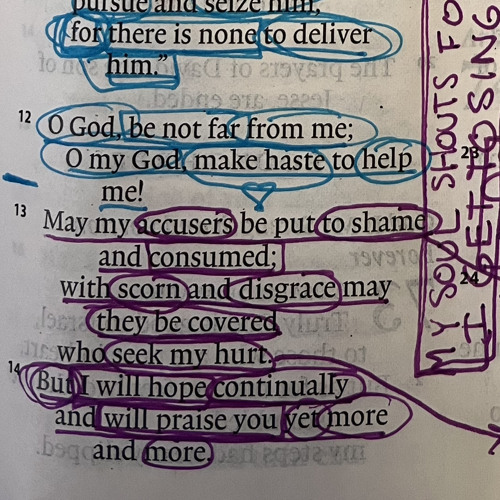 pursue and seize him,
for there is none to deliver
him."
12 O God, be not far from me;
O my God, make haste to help
me!
13 May my accusers be put to shame
and consumed;
with scorn and disgrace may
they be covered
who seek my hurt.
14 But I will hope continually
and will praise you yet more
and more.
23
24
MY SOUL SHOUTS FO